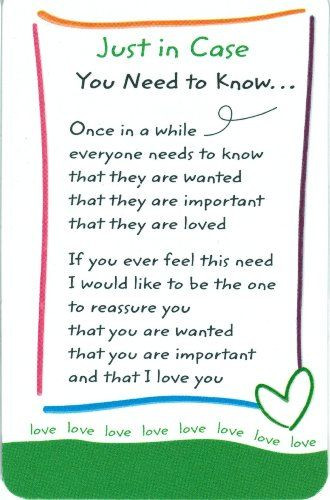 Just in Case
You Need to Know...
Once in a while
everyone needs to know
that they are wanted
that they are important
that they are loved
If you ever feel this need
I would like to be the one
to reassure you
that you are wanted
that you are important
and that I love you
love love love love love love love love